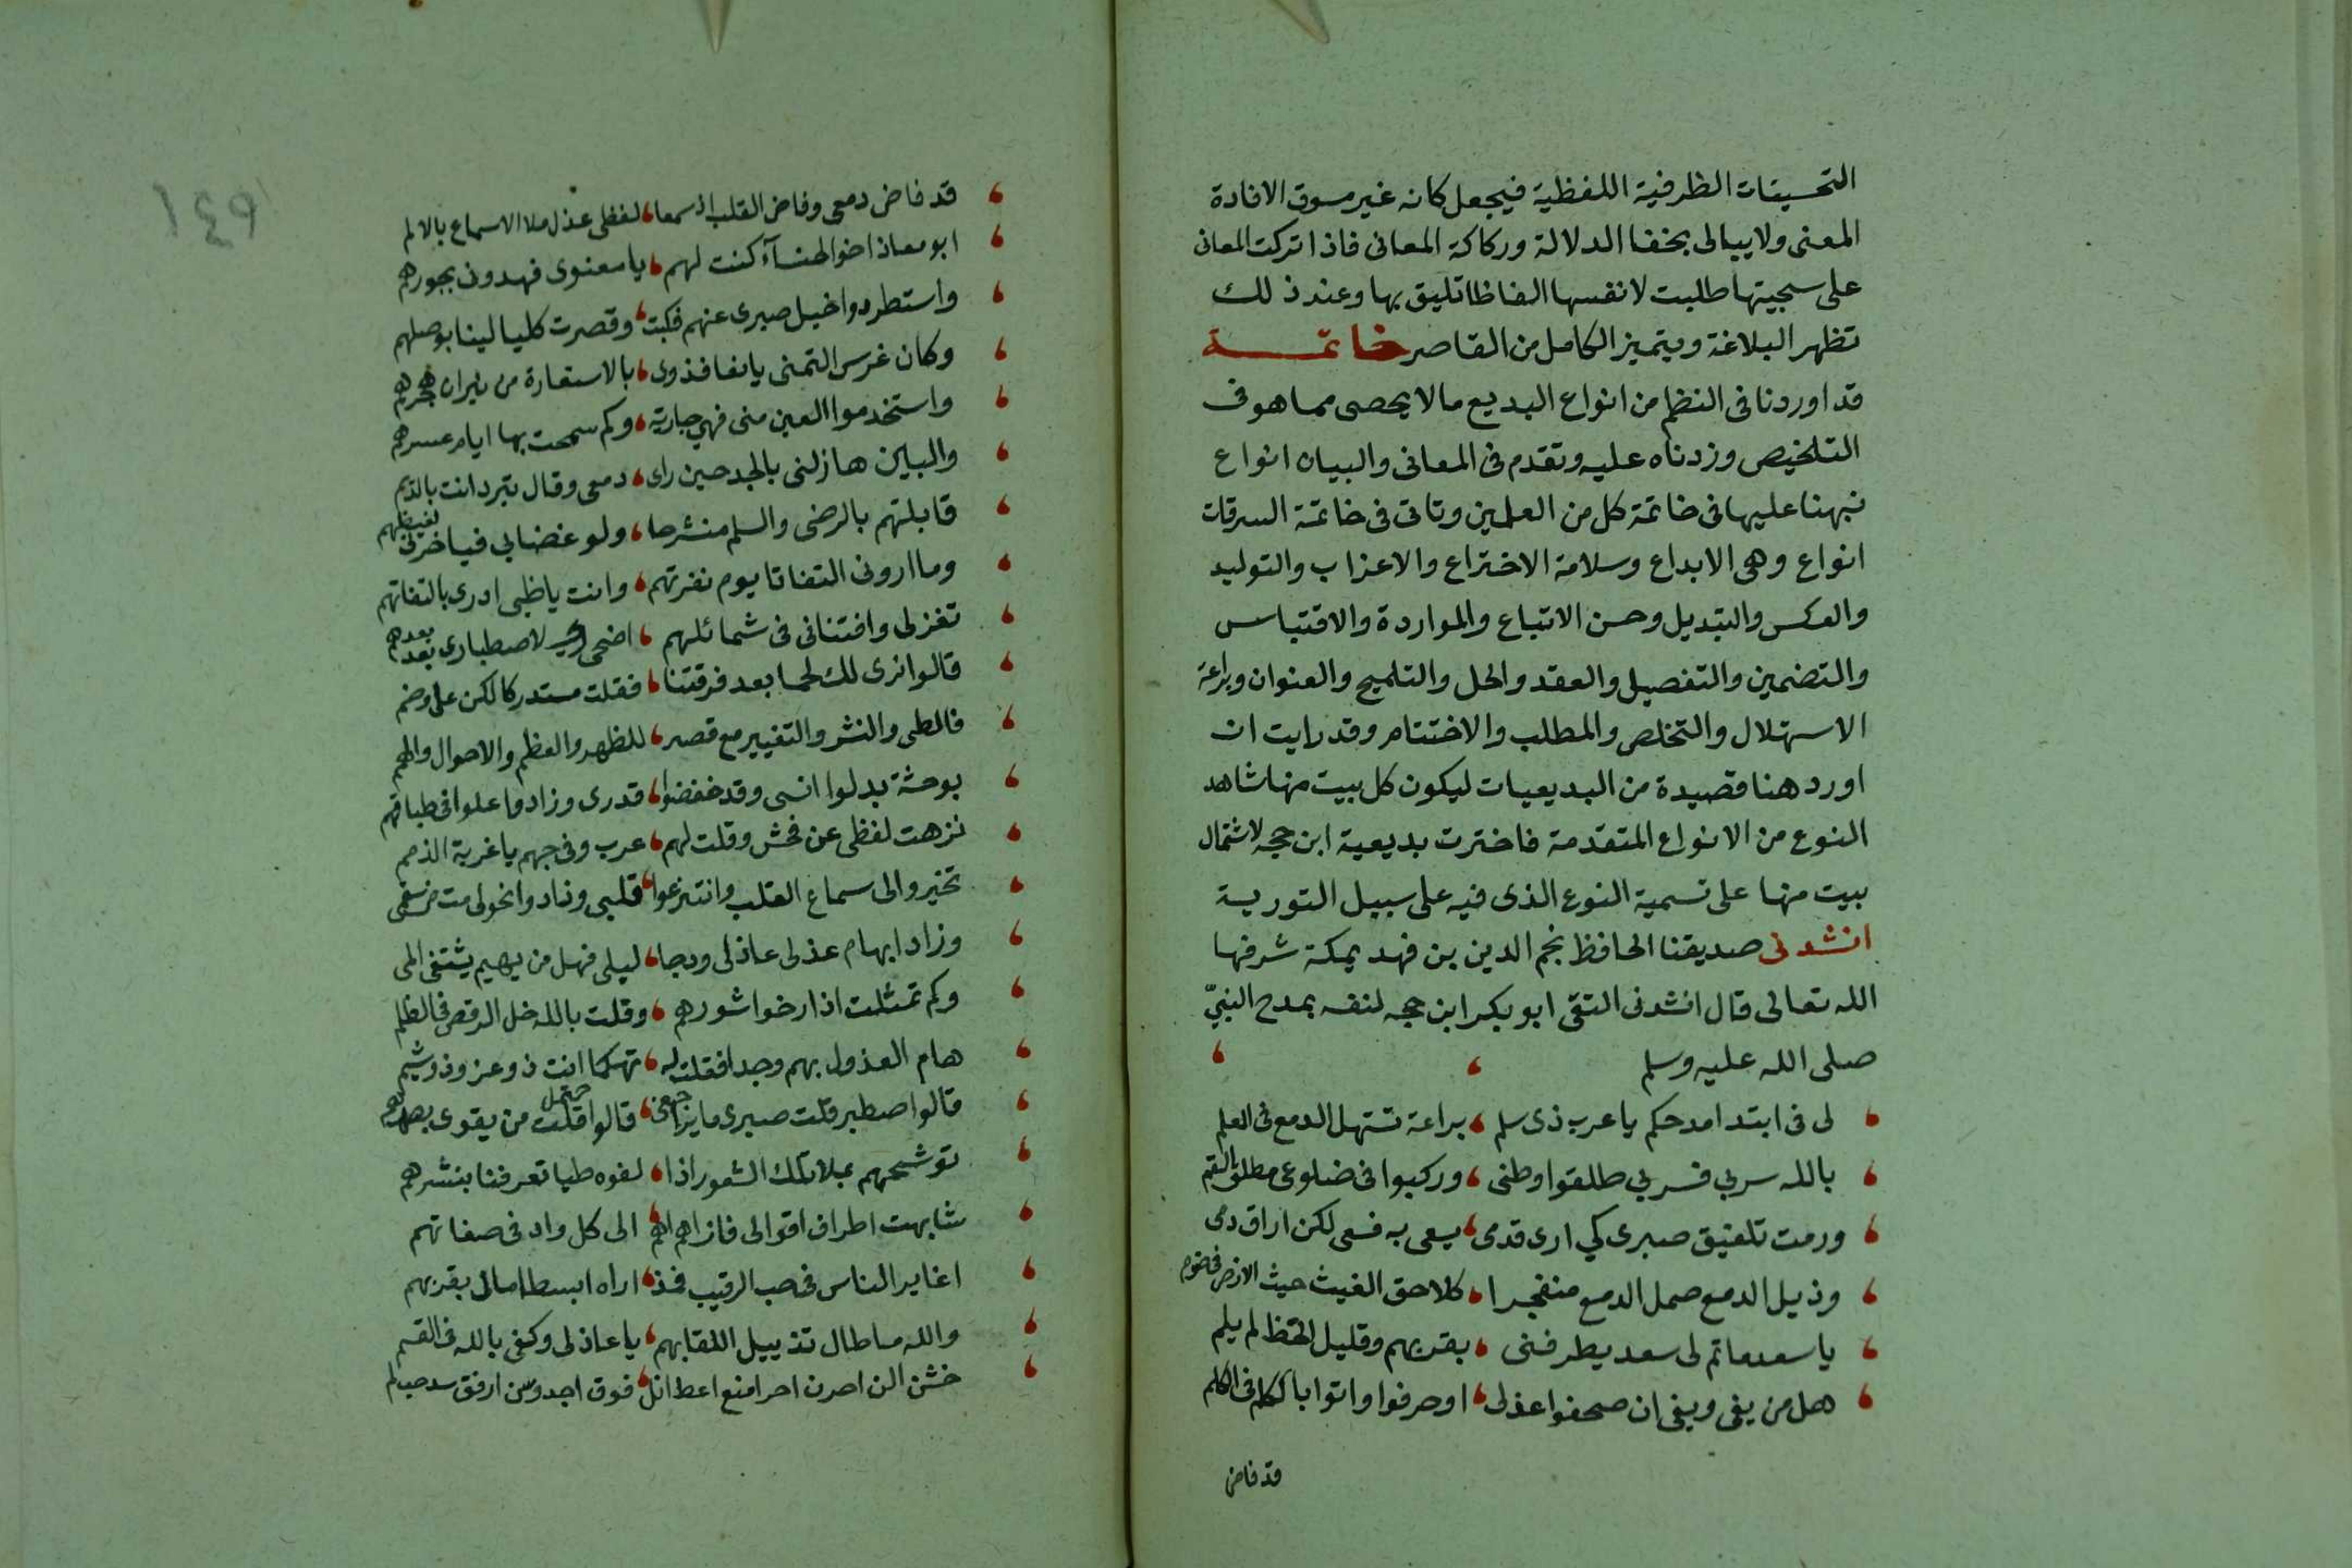 التحسينات الظرفية اللفظية فيجعل كانه غير مسوق الافادة
المعنى ولا يبالى بخفا الدلالة وركاكة المعانى فاذا تركت المعانى
على سجيتها طلبت لانفسها الفاظا تليق بها وعند ذلك
تظهر البلاغة ويتميز الكامل من القاصر خاتمة
قد اوردنا فى النظم من انواع البديع مالا يحصى مما هو فى
التلخيص وزدناه عليه وتقدم فى المعانى والبيان انواع
نبهنا عليها فى خاتمة كل من العلمين وتاتى فى خاتمة السرقات
انواع وهى الابداع وسلامة الاختراع والاعزاب والتوليد
والعكس والتبديل وحسن الاتباع والمواردة والاقتباس
والتضمين والتفصيل والعقد والحل والتلميح والعنوان وبراعة
الاستهلال والتخلص والمطلب والاختتام وقد رايت ان
اورد هنا قصيدة من البديعيات ليكون كل بيت منها شاهد
النوع من الانواع المتقدمة فاخترت بديعية ابن حجه لاشتمال
بيت منها على تسمية النوع الذى فيه على سبيل التورية
انشدنى صديقنا الحافظ نجم الدين بن فهد بمكة شرفها
الله تعالى قال انشدنى التقى ابو بكر ابن حجه لنفسه بمدح النبيّ
صلى الله عليه وسلم
لى فى ابتدا مدحكم يا عرب ذى سلم ، براعة تستهل الدمع فى العلم
بالله سربي فسربي طلقوا وطنى ، وركبوا فى ضلوعى مطلق السقم
ورمت تلفيق صبرى كي ارى قدمى ، يسعى به فسعى لكن اراق دمى
وذيل الدمع همل الدمع منفجرا ، كلاحق الغيث حيث الارض فى ضرم
يا سعد ماتم لى سعد يطرفنى ، بقربهم وقليل الحظ لم يلم
هل من يفى ويفى ان صحفوا عذلى ، او حرفوا واتوا بالكلم فى الكلم
قد فاض
١٤٩
قد فاض دمعى وفاض القلب اذ سمعا ، لفظى عذل ملا الاسماع بالالم
ابو معاذ اخوا لهنساء كنت لهم ، يا معنوى فهدونى بجورهم
واستطردوا خيل صبرى عنهم فكبت ، وقصرت كليالينا بوصلهم
وكان غرس التمنى يانعا فذوى ، بالاستعارة من نيران هجرهم
واستخدموا العين منى فهى جارية ، وكم سمحت بها ايام عسرهم
والبين هازلنى بالجد حين راى ، دمعى وقال تبرد انت بالديم
قابلتهم بالرضى والسلم منشرحا ، ولو غضابي فياخربى لغيظهم
وما ارونى التفاتا يوم نفرتهم ، وانت يا ظبى ادرى بالتفاتهم
تغزلى وافتنانى فى شمائلهم ، اضحى لاصطبارى بعد بعدهم
قالوا نرى لك لحما بعد فرقتنا ، فقلت مستدركا لكن على وضم
فالطى والنشر والتغيير مع قصر ، للظهر والعظم والاحوال والهمم
بوحشة بدلوا انسى وقد خفضوا ، قدرى وزادوا علوا فى طباقهم
نزهت لفظى عن فحش وقلت لهم ، عرب وفى حيهم يا غربة الذمم
تخيروا لى سماع العقلب وانتزعوا ، قلبى وزادوا نحولى مت من سقمى
وزاد ابهام عذلى عاذلى ودجا ، ليلى فهل من بهيم يشتفى المى
وكم تمثلت اذ ارخوا شعورهم ، وقلت بالله خل الرقص فى الظلم
هام العذول بهم وجدا فقلت له ، تهكما انت ذو عز وذو شيم
قالوا اصطبر قلت صبرى ما يراجعنى ، قالوا احتمل قلت من يقوى بصدهم
توشيحهم بملا تلك الشعور اذا ، لفوه طيا تعرفنا بنشرهم
شابهت اطراف اقوالى فان اهم اهم ، الى كل واد فى صفاتهم
اغاير الناس فى حب الرقيب فمذ ، اراه ابسط امالى بقربهم
والله ما طال تذييل اللقا بهم ، يا عاذلى وكفى بالله فى القسم
خشن الن احزن احر امنع اعط انل ، فوق اجد وسن ارفق سد حب لم